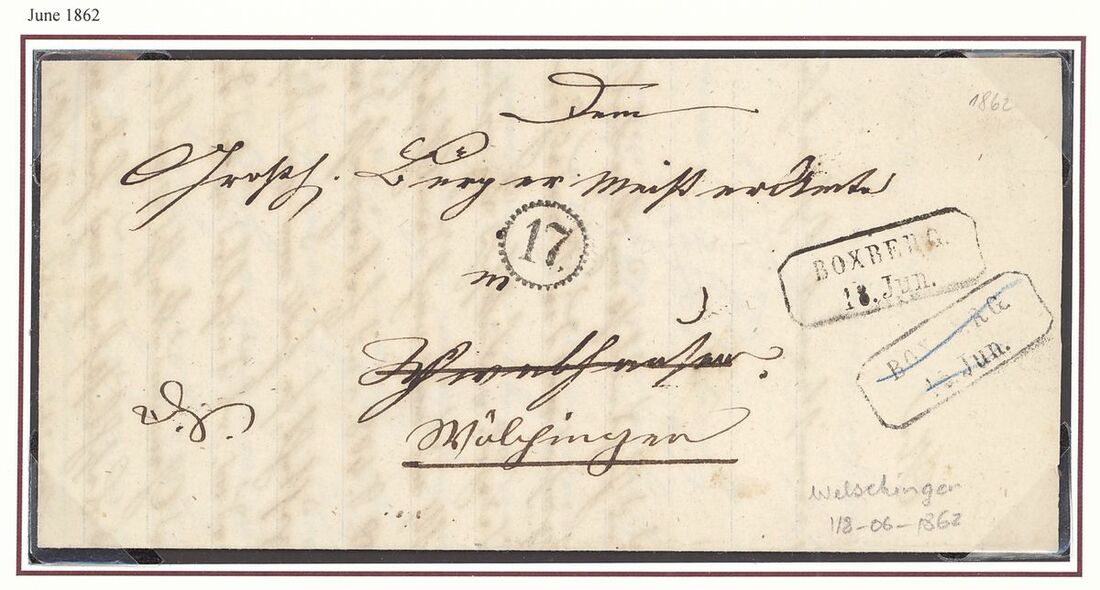 June 1862
1862
Dem
Grosh. Bürgermeisteramte
17
in
BOXBERG.
18. Jun.
BOX RG
Jun.
D. S.
Wölchingen
Welschingen
18-06-1862